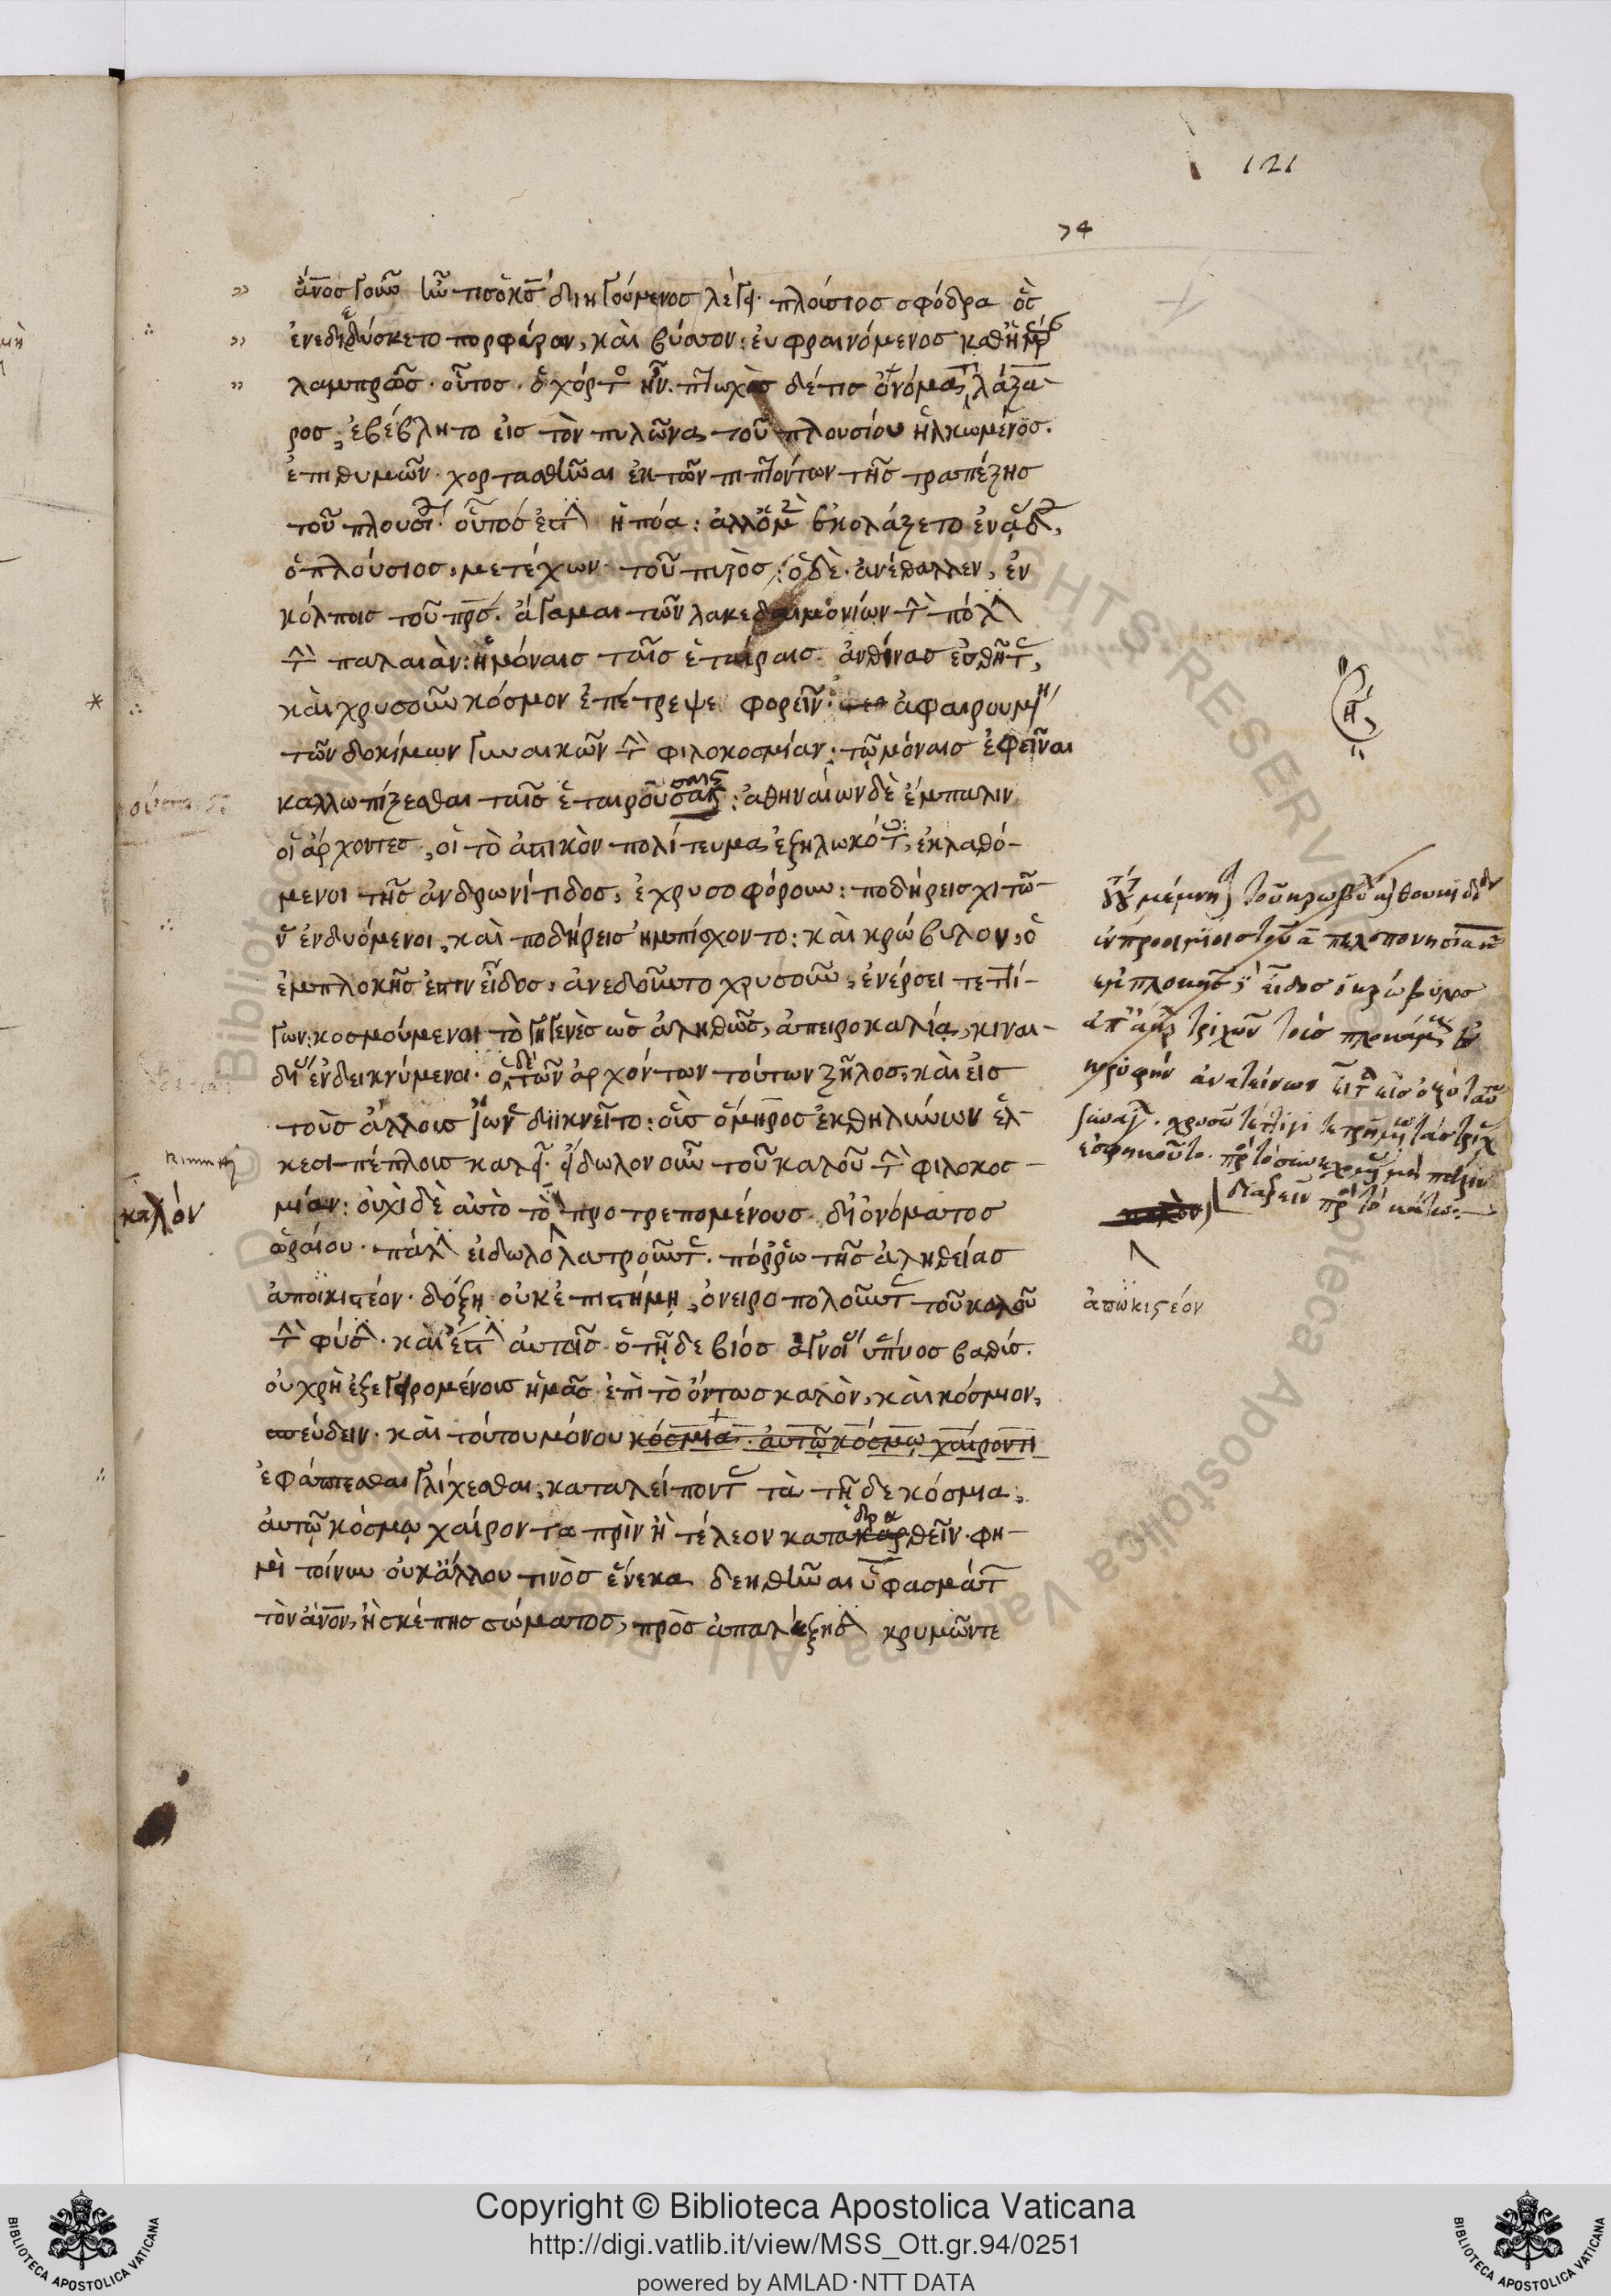 121
74
ἄνος γοῦν ἦν τις ὁ κς διηγούμενος λέγει· πλούσιος σφόδρα ὃς
ἐνεδιδύσκετο πορφύραν, καὶ βύσσον: εὐφραινόμενος καθ' ἡμέραν
λαμπρῶς· οὗτος· ὁ χόρτος ἦν· πτωχὸς δέ τις ὀνόματι λάζα-
ρος, ἐβέβλητο εἰς τὸν πυλῶνα τοῦ πλουσίου ἡλκωμένος·
ἐπιθυμῶν· χορτασθῆναι ἐκ τῶν πιπτόντων τῆς τραπέζης
τοῦ πλουσίου· οὗτός ἐστιν ἡ πόα: ἀλλ' ὁ μὲν ἐκολάζετο ἐν ᾅδου,
ὁ πλούσιος, μετέχων τοῦ πυρός: ὁ δὲ ἀνέθαλλεν, ἐν
κόλποις τοῦ πρς· ἄγαμαι τῶν λακεδαιμονίων τὴν πόλιν
τὴν παλαιὰν: ἣ μόναις ταῖς ἑταίραις ἀνθίνας ἐσθῆτας,
καὶ χρυσοῦν κόσμον ἐπέτρεψε φορεῖν· ἀφαιρουμένη
τῶν δοκίμων γυναικῶν τὴν φιλοκοσμίαν: τῷ μόναις ἐφεῖναι
καλλωπίζεσθαι ταῖς ἑταιρούσαις: ἀθηναίων δὲ ἔμπαλιν
οἱ ἄρχοντες, οἱ τὸ ἀστικὸν πολίτευμα ἐζηλωκότες, ἐκλαθό-
μενοι τῆς ἀνδρωνίτιδος, ἐχρυσοφόρουν: ποδήρεις χιτῶ-
ν ἐνδυόμενοι, καὶ ποδήρεις ἠμπίσχοντο: καὶ κρώβυλον, ὃ
ἐμπλοκῆς ἐστιν εἶδος, ἀνεδοῦντο χρυσοῦν, ἐνέρσει τεττί-
γων: κοσμούμενοι τὸ γηγενὲς ὡς ἀληθῶς, ἀπειροκαλίᾳ, κιναι-
δίας ἐνδεικνύμενοι· ὁ δὲ τῶν ἀρχόντων τούτων ζῆλος, καὶ εἰς
τοὺς ἄλλους ἴωνας διϊκνεῖτο: οὓς ὅμηρος ἐκθηλύνων ἑλ-
κεσιπέπλους καλεῖ· εἴδωλον οὖν τοῦ καλοῦ τὴν φιλοκοσ-
μίαν: οὐχὶ δὲ αὐτὸ τὸ προτρεπομένους δι' ὀνόματος
ὡραίου· πάλιν εἰδωλολατροῦντας· πόρρω τῆς ἀληθείας
ἀποικιστέον· δόξῃ οὐκ ἐπιστήμῃ, ὀνειροπολοῦντας τοῦ καλοῦ
τὴν φύσιν· καὶ ἔστιν αὐτοῖς ὁ τῇδε βίος ἀγνοίας ὕπνος βαθύς·
οὗ χρὴ ἐξεγειρομένους ἡμᾶς ἐπὶ τὸ ὄντως καλὸν, καὶ κόσμιον,
σπεύδειν· καὶ τούτου μόνου κόσμια· αὐτῷ κόσμῳ χαίροντι
ἐφάπτεσθαι γλίχεσθαι, καταλείποντας τὰ τῇδε κόσμια,
αὐτῷ κόσμῳ χαίροντα πρὶν ἢ τέλεον καταδαρθεῖν· φη-
μὶ τοίνυν οὐκ ἄλλου τινὸς ἕνεκα δεηθῆναι ὑφασμάτων
τὸν ἄνον, ἢ σκέπης σώματος, πρὸς ἀπαλέξησιν κρυμῶν τε
καλόν
ἐν προοιμίοις τοῦ α πελοποννησιακοῦ
ἐμπλοκῆς εἶδος ὁ κρώβυλος
ἀποικιστέον
Copyright © Biblioteca Apostolica Vaticana
http://digi.vatlib.it/view/MSS_Ott.gr.94/0251
powered by AMLAD·NTT DATA
BIBLIOTECA APOSTOLICA VATICANA
BIBLIOTECA APOSTOLICA VATICANA